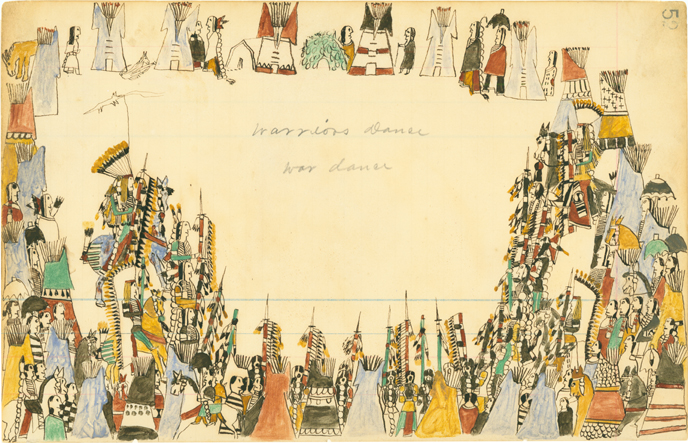 warriors Dance
war dance